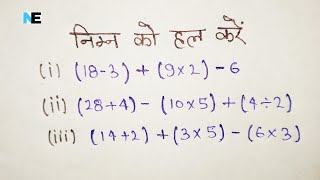 NE
निम्न को हल करें
(i) (18-3) + (9×2) - 6
(ii) (28+4) - (10×5) + (4÷2)
(iii) (14+2) + (3×5) - (6×3)